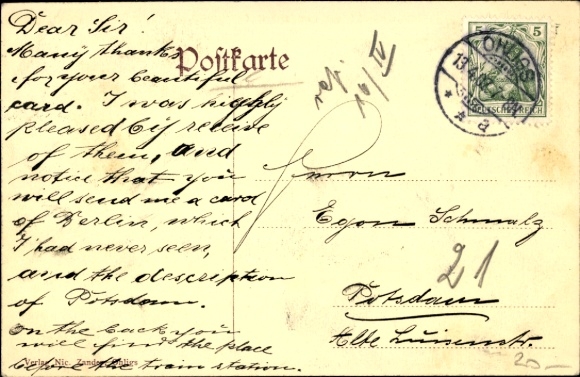 Dear Sir!
Many thanks
for your beautiful
card. I was highly
pleased by receive
of them, and
notice that you
will send me a card
of Berlin, which
I had never seen,
and the description
of Potsdam.
On the back you
will find the place
before the train station.
Postkarte
16/IV
5
5
OHLIGS
DEUTSCHES REICH
* a
Herrn
Egon Schmalz
21
Potsdam
Alte Luisenstr.
20.-
Verlag Nic. Zander, Ohligs